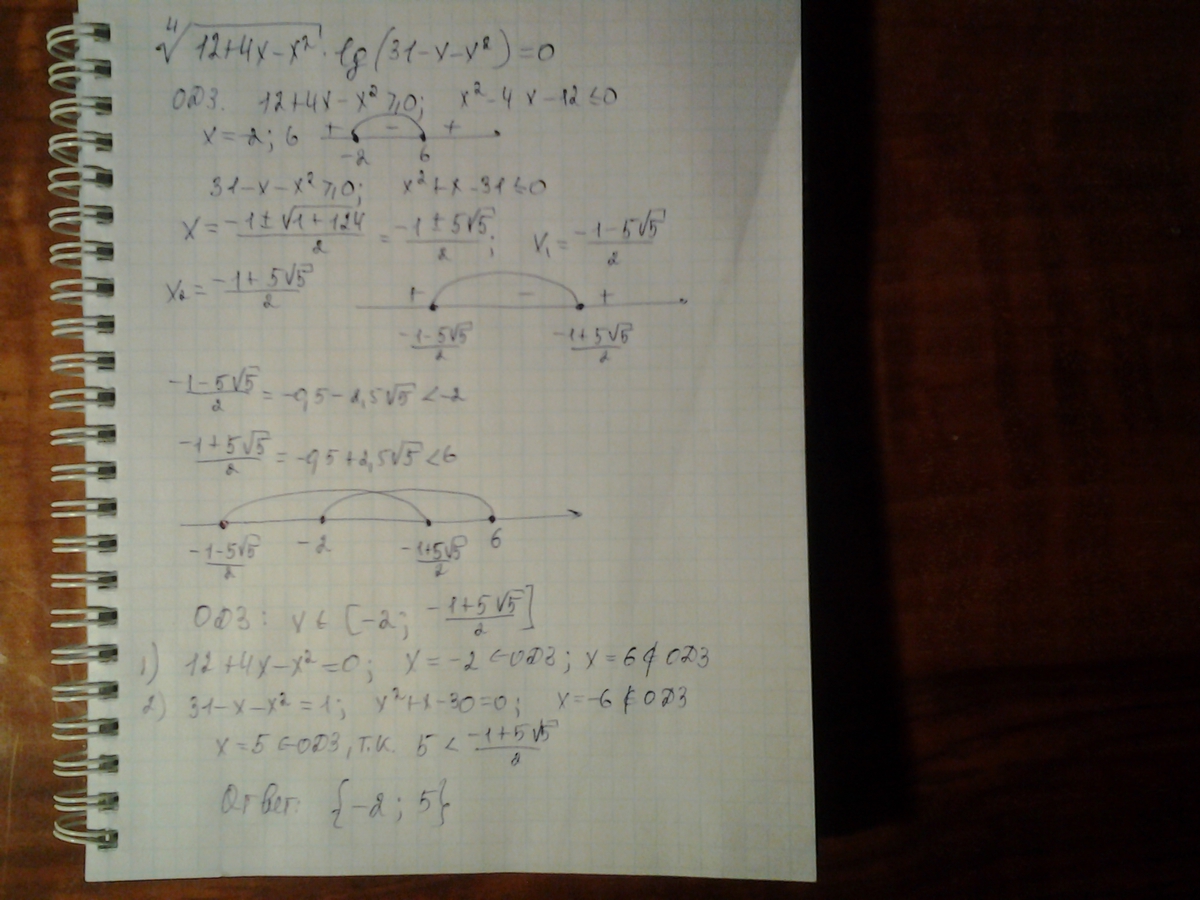 ∜(12+4x-x²) · lg(31-x-x²)=0
ОДЗ. 12+4x-x²≥0; x²-4x-12≤0
x=-2; 6 + - +
-2 6
31-x-x²≥0; x²+x-31≤0
x = (-1±√(1+124))/2 = (-1±5√5)/2; x₁ = (-1-5√5)/2
x₂ = (-1+5√5)/2 + - +
(-1-5√5)/2 (-1+5√5)/2
(-1-5√5)/2 = -0,5-2,5√5 < -2
(-1+5√5)/2 = -0,5+2,5√5 < 6
(-1-5√5)/2 -2 (-1+5√5)/2 6
ОДЗ: x ∈ [-2; (-1+5√5)/2]
1) 12+4x-x²=0; x=-2 ∈ ОДЗ; x=6 ∉ ОДЗ
2) 31-x-x²=1; x²+x-30=0; x=-6 ∉ ОДЗ
x=5 ∈ ОДЗ, т.к. 5 < (-1+5√5)/2
Ответ: {-2; 5}